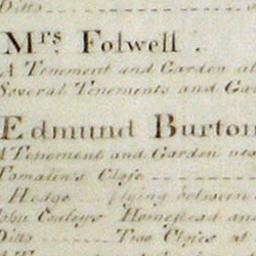 Ditto
Mrs Folwell.
A Tenement and Garden at
Several Tenements and Gar
Edmund Burton
A Tenement and Garden nea
Tomalin's Close
Hedge flying between
John Cowleys Homestead and
Ditto Two Closes at